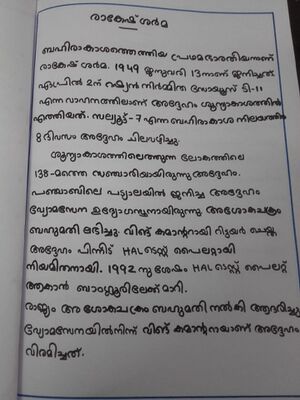 രാകേഷ് ശർമ
ബഹിരാകാശത്തെത്തിയ പ്രഥമഭാരതീയനാണ്
രാകേഷ് ശർമ. 1949 ജനുവരി 13നാണ് ജനിച്ചത്.
ഏപ്രിൽ 2ന് റഷ്യൻ നിർമ്മിത സോയൂസ് ടി-11
എന്ന വാഹനത്തിലാണ് അദ്ദേഹം ശൂന്യാകാശത്തിൽ
എത്തിയത്. സല്യൂട്ട്-7 എന്ന ബഹിരാകാശ നിലയത്തിൽ
8 ദിവസം അദ്ദേഹം ചിലവഴിച്ചു.
ശൂന്യാകാശത്തിലെത്തുന്ന ലോകത്തിലെ
138-മത്തെ സഞ്ചാരിയായിരുന്നു അദ്ദേഹം.
പഞ്ചാബിലെ പട്യാലയിൽ ജനിച്ച അദ്ദേഹം
വ്യോമസേന ഉദ്യോഗസ്ഥനായിരുന്നു അശോകചക്രം
ബഹുമതി ലഭിച്ചു. വിങ്ങ് കമാന്ററായി റിട്ടയർ ചെയ്ത
അദ്ദേഹം പിന്നീട് HAL ടെസ്റ്റ് പൈലറ്റായി
നിയമിതനായി. 1992 നു ശേഷം HAL ടെസ്റ്റ് പൈലറ്റ്
ആകാൻ ബാംഗ്ലൂരിലേക്ക് മാറി.
രാജ്യം അശോകചക്രം ബഹുമതി നൽകി ആദരിച്ചു
വ്യോമസേനയിൽനിന്ന് വിങ്ങ് കമാന്ററായാണ് അദ്ദേഹം
വിരമിച്ചത്.